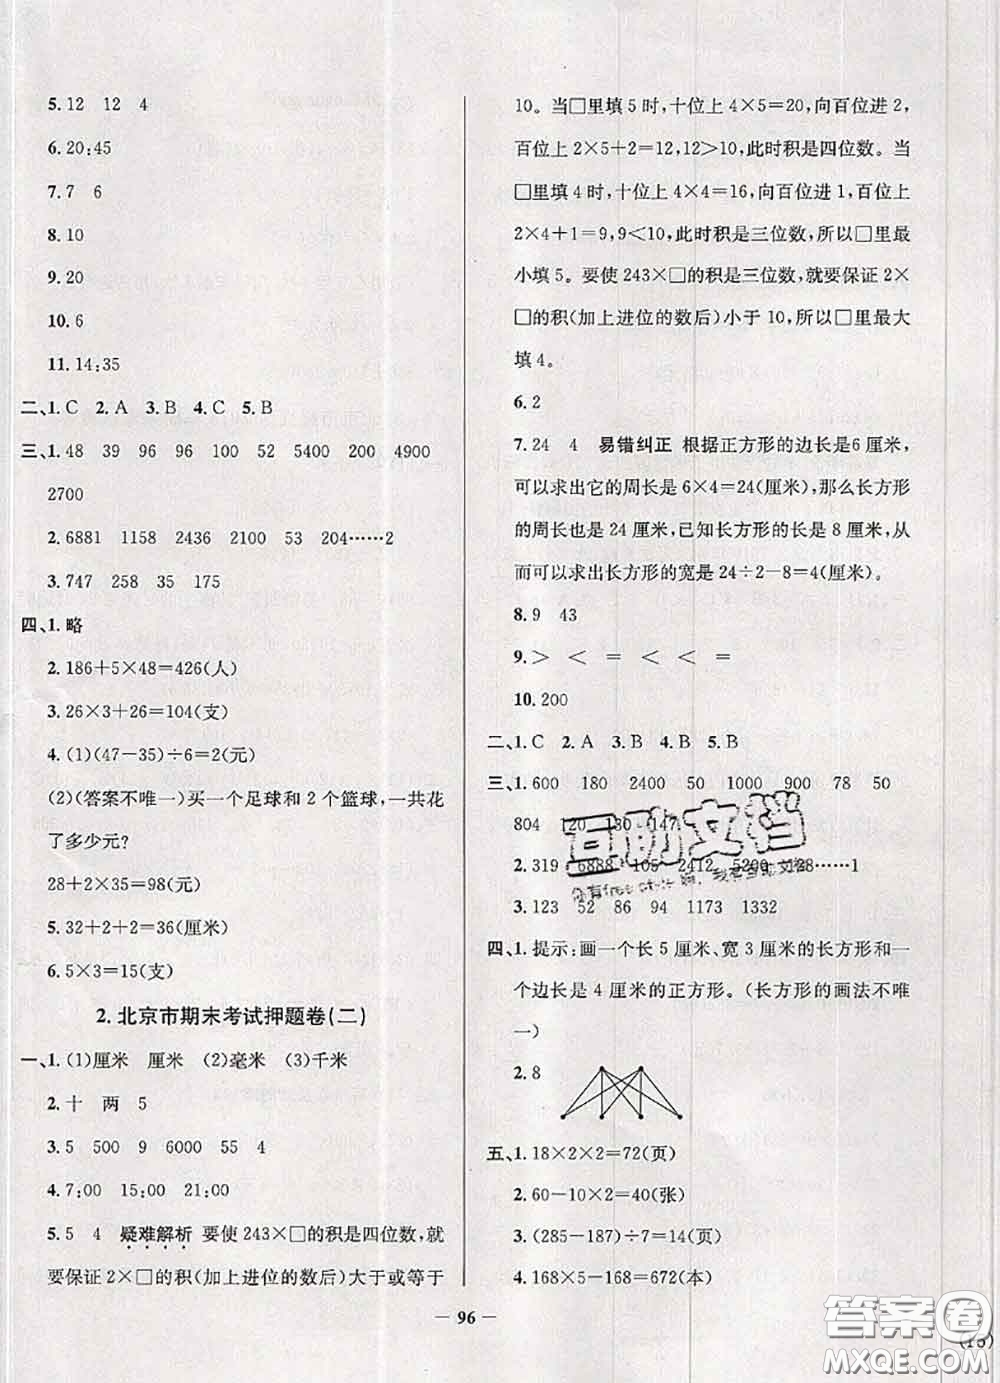 5. 12　12　4
6. 20:45
7. 7　6
8. 10
9. 20
10. 6
11. 14:35
二、1. C　2. A　3. B　4. C　5. B
三、1. 48　39　96　96　100　52　5400　200　4900
2700
2. 6881　1158　2436　2100　53　204……2
3. 747　258　35　175
四、1. 略
2. 186+5×48=426(人)
3. 26×3+26=104(支)
4. (1)(47-35)÷6=2(元)
(2)(答案不唯一)买一个足球和2个篮球，一共花
了多少元?
28+2×35=98(元)
5. 32+2+2=36(厘米)
6. 5×3=15(支)
2. 北京市期末考试押题卷(二)
一、1. (1)厘米　厘米　(2)毫米　(3)千米
2. 十　两　5
3. 5　500　9　6000　55　4
4. 7:00　15:00　21:00
5. 5　4　疑难解析　要使243×□的积是四位数，就
要保证2×□的积(加上进位的数后)大于或等于
10。当□里填5时，十位上4×5=20，向百位进2，
百位上2×5+2=12,12>10，此时积是四位数。当
□里填4时，十位上4×4=16，向百位进1，百位上
2×4+1=9,9<10，此时积是三位数，所以□里最
小填5。要使243×□的积是三位数，就要保证2×
□的积(加上进位的数后)小于10，所以□里最大
填4。
6. 2
7. 24　4　易错纠正　根据正方形的边长是6厘米，
可以求出它的周长是6×4=24(厘米)，那么长方形
的周长也是24厘米，已知长方形的长是8厘米，从
而可以求出长方形的宽是24÷2-8=4(厘米)。
8. 9　43
9. >　<　=　<　<　=
10. 200
二、1. C　2. A　3. B　4. B　5. B
三、1. 600　180　2400　50　1000　900　78　50
804　120　130　147
2. 319　6888　105　2412　5200　128……1
3. 123　52　86　94　1173　1332
四、1. 提示：画一个长5厘米、宽3厘米的长方形和一
个边长是4厘米的正方形。(长方形的画法不唯
一)
2. 8
五、1. 18×2×2=72(页)
2. 60-10×2=40(张)
3. (285-187)÷7=14(页)
4. 168×5-168=672(本)
互助文档
96
(15)
答案圈
MXQE.COM